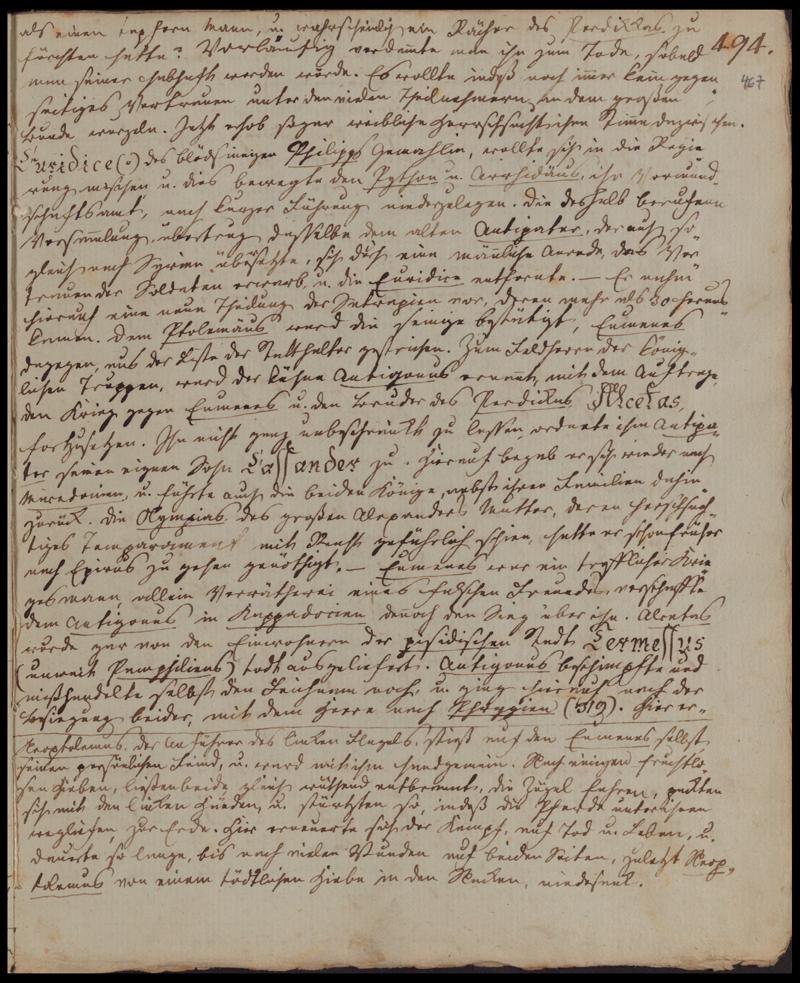 als einen tapfern Mann, u. wahrscheinlich ein Rächer des Perdikkas zu
fürchten hatte? Vorläufig verdammte man ihn zum Tode, sobald 494.
man seiner habhaft werden würde. Es wollte indeß noch immer kein gegen 467
seitiges Vertrauen unter den vielen Theilnehmern an dem großen
Bunde wurzeln. Jetzt erhob sogar weibliche Herrschsucht ihre Stimme dazwischen.
Euridice(,) des blödsinnigen Philipps Gemahlin, wollte sich in die Regie
rung mischen u. dies bewegte den Python u. Arrhidäus, ihr Vormund-
schaftsamt, nach kurzer Führung niederzulegen. Die deshalb berufene
Versammlung, übertrug dasselbe dem alten Antipater, der auch so-
gleich nach Syrien übersetzte, sich durch eine männliche Anrede, das Ver-
trauen der Soldaten erwarb, u. die Euridice entfernte. — Er nahm
hierauf eine neue Theilung der Satrapien vor, deren mehr als 30 heraus
kamen. Dem Ptolemäus ward die seinige bestätigt, Eumenes
dagegen, aus der Liste der Statthalter gestrichen. Zum Feldherrn der König-
lichen Truppen, ward der kühne Antigonus ernannt, mit dem Auftrage,
den Krieg gegen Eumenes u. den Bruder des Perdikas Alcetas,
fortzusetzen. Ihn nicht ganz unbeschränkt zu lassen, ordnete ihm Antipa-
ter seinen eignen Sohn Cassander zu. Hierauf begab er sich wieder nach
Macedonien, u. führte auch die beiden Könige, nebst ihren Familien dahin
zurück. Die Olympias des großen Alexanders Mutter, deren herrschsüch-
tiges Temperament mit Recht gefährlich schien, hatte er schon früher
nach Epirus zu gehen genöthigt. — Eumenes war ein trefflicher Krie-
gesmann allein Verrätherei eines falschen Freundes, verschaffte
dem Antigonus in Kappadocien dennoch den Sieg über ihn. Alcetas
wurde gar von den Einwohnern der pisidischen Stadt Termessus
(unweit Pamphiliens) todt ausgeliefert. Antigonus beschimpfte und
mißhandelte selbst den Leichnam noch u. ging hierauf nach der
Besiegung beider, mit dem Heere nach Phrygien (319). Hier er-
Neoptolemus, der Anführer des linken Flügels, stieß auf den Eumenes selbst
seinen persönlichen Feind, u. ward mit ihm handgemein. Nach einigen fruchtlo-
sen Hieben, ließen beide gleich wüthend entbrannt, die Zügel fahren, packten
sich mit den linken Händen, u. stürtzten so, indeß die Pferde unter ihnen
wegliefen, zur Erde. Hier erneuerte sich der Kampf, auf Tod u. Leben, u.
dauerte so lange, bis nach vielen Wunden auf beiden Seiten, zuletzt Neop-
tolemus von einem tödtlichen Hiebe in den Nacken, niedersank.